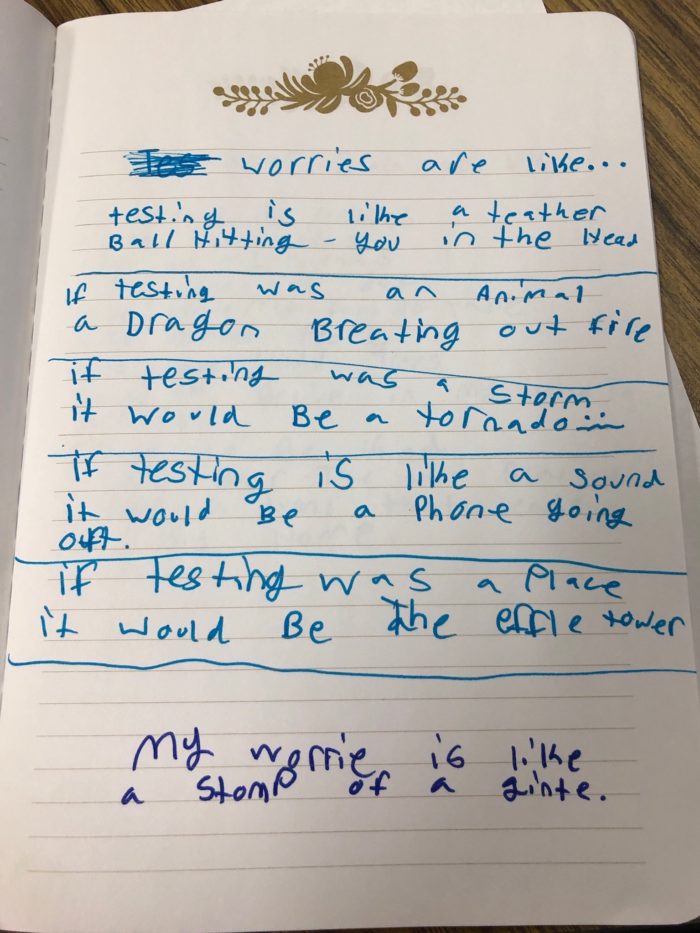 worries are like...
testing is like a teather
Ball Hitting - you in the Head
if testing was an Animal
a Dragon Breating out fire
if testing was a Storm
it would Be a tornado...
if testing is like a sound
it would Be a Phone going
off.
if testing was a Place
it would Be The effle tower
My worrie is like
a stomp of a ginte.